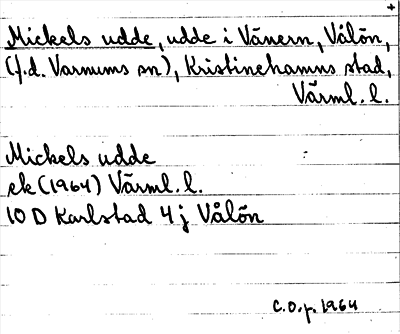 Mickels udde, udde i Vänern, Vålön,
(f.d. Varnums sn), Kristinehamns stad,
Värml. l.
Mickels udde
ek (1964) Värml. l.
10 D Karlstad 4 j Vålön
C.O.p. 1964